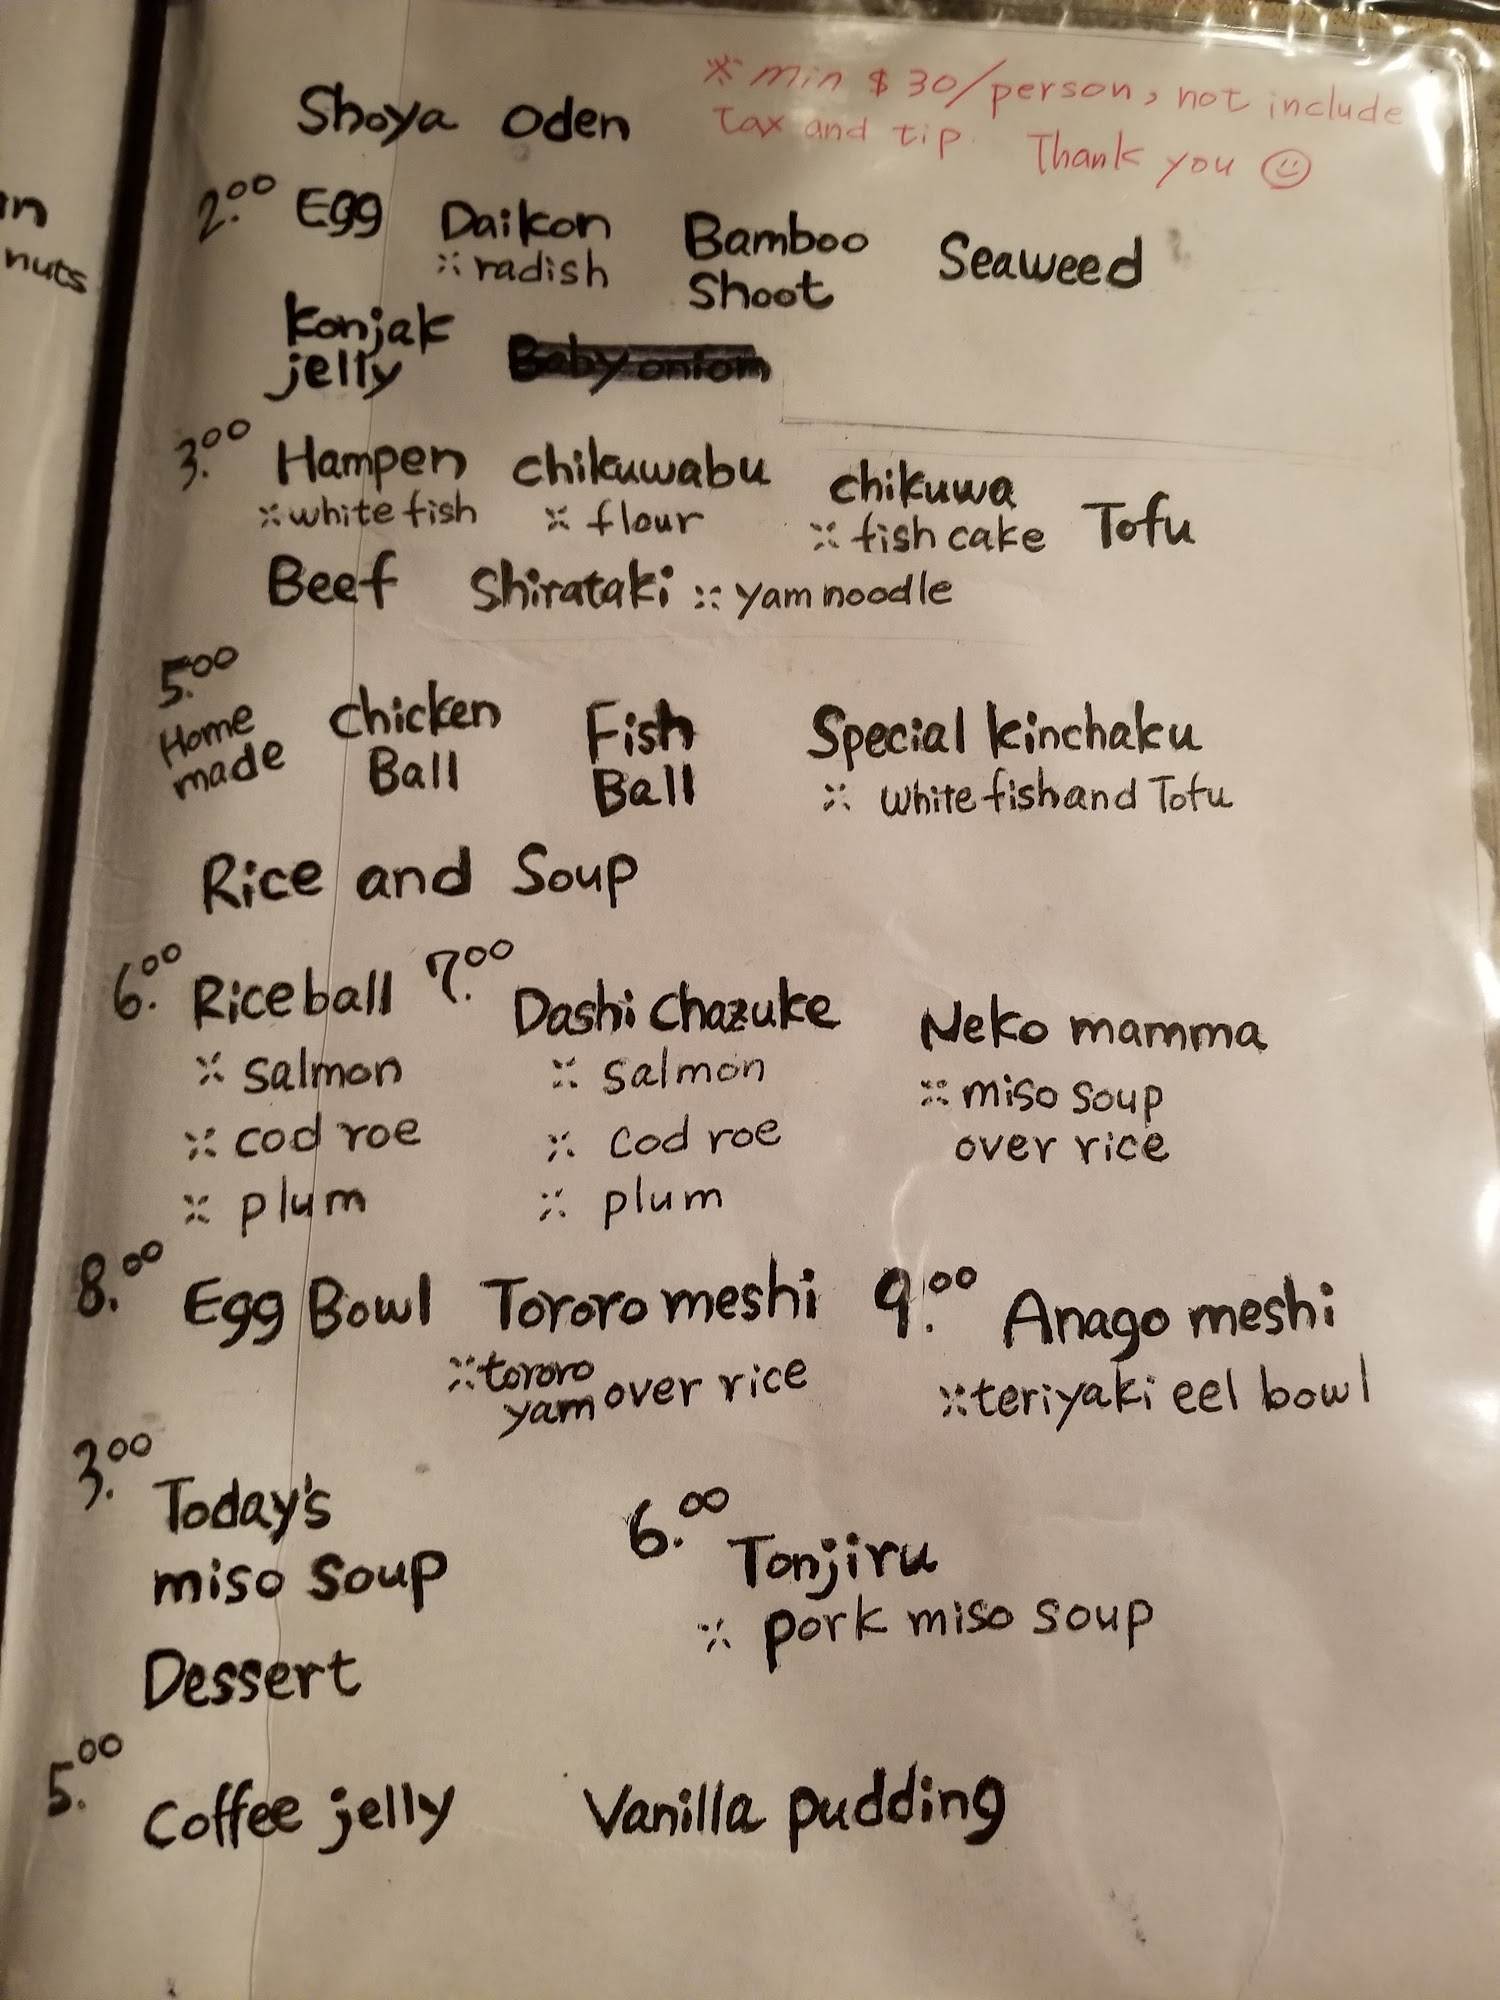 in
nuts
Shoya Oden
※ min $30/person, not include
tax and tip. Thank you
2.00 Egg Daikon Bamboo Shoot Seaweed
※ radish
Konjak jelly Baby oniom
3.00 Hampen chikuwabu chikuwa Tofu
※ white fish ※ flour ※ fish cake
Beef Shirataki ※ yam noodle
5.00
Home made Chicken Ball Fish Ball Special kinchaku
※ white fish and Tofu
Rice and Soup
6.00 Rice ball 7.00 Dashi Chazuke Neko mamma
※ salmon ※ salmon ※ miso soup over rice
※ cod roe ※ cod roe
※ plum ※ plum
8.00 Egg Bowl Tororo meshi 9.00 Anago meshi
※ tororo yam over rice ※ teriyaki eel bowl
3.00 Today's miso soup 6.00 Tonjiru
※ pork miso soup
Dessert
5.00 Coffee jelly Vanilla pudding